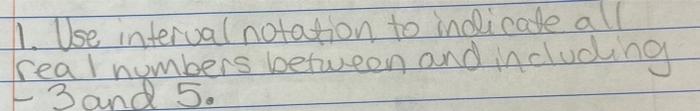 1. Use interval notation to indicate all
real numbers between and including
- 3 and 5.